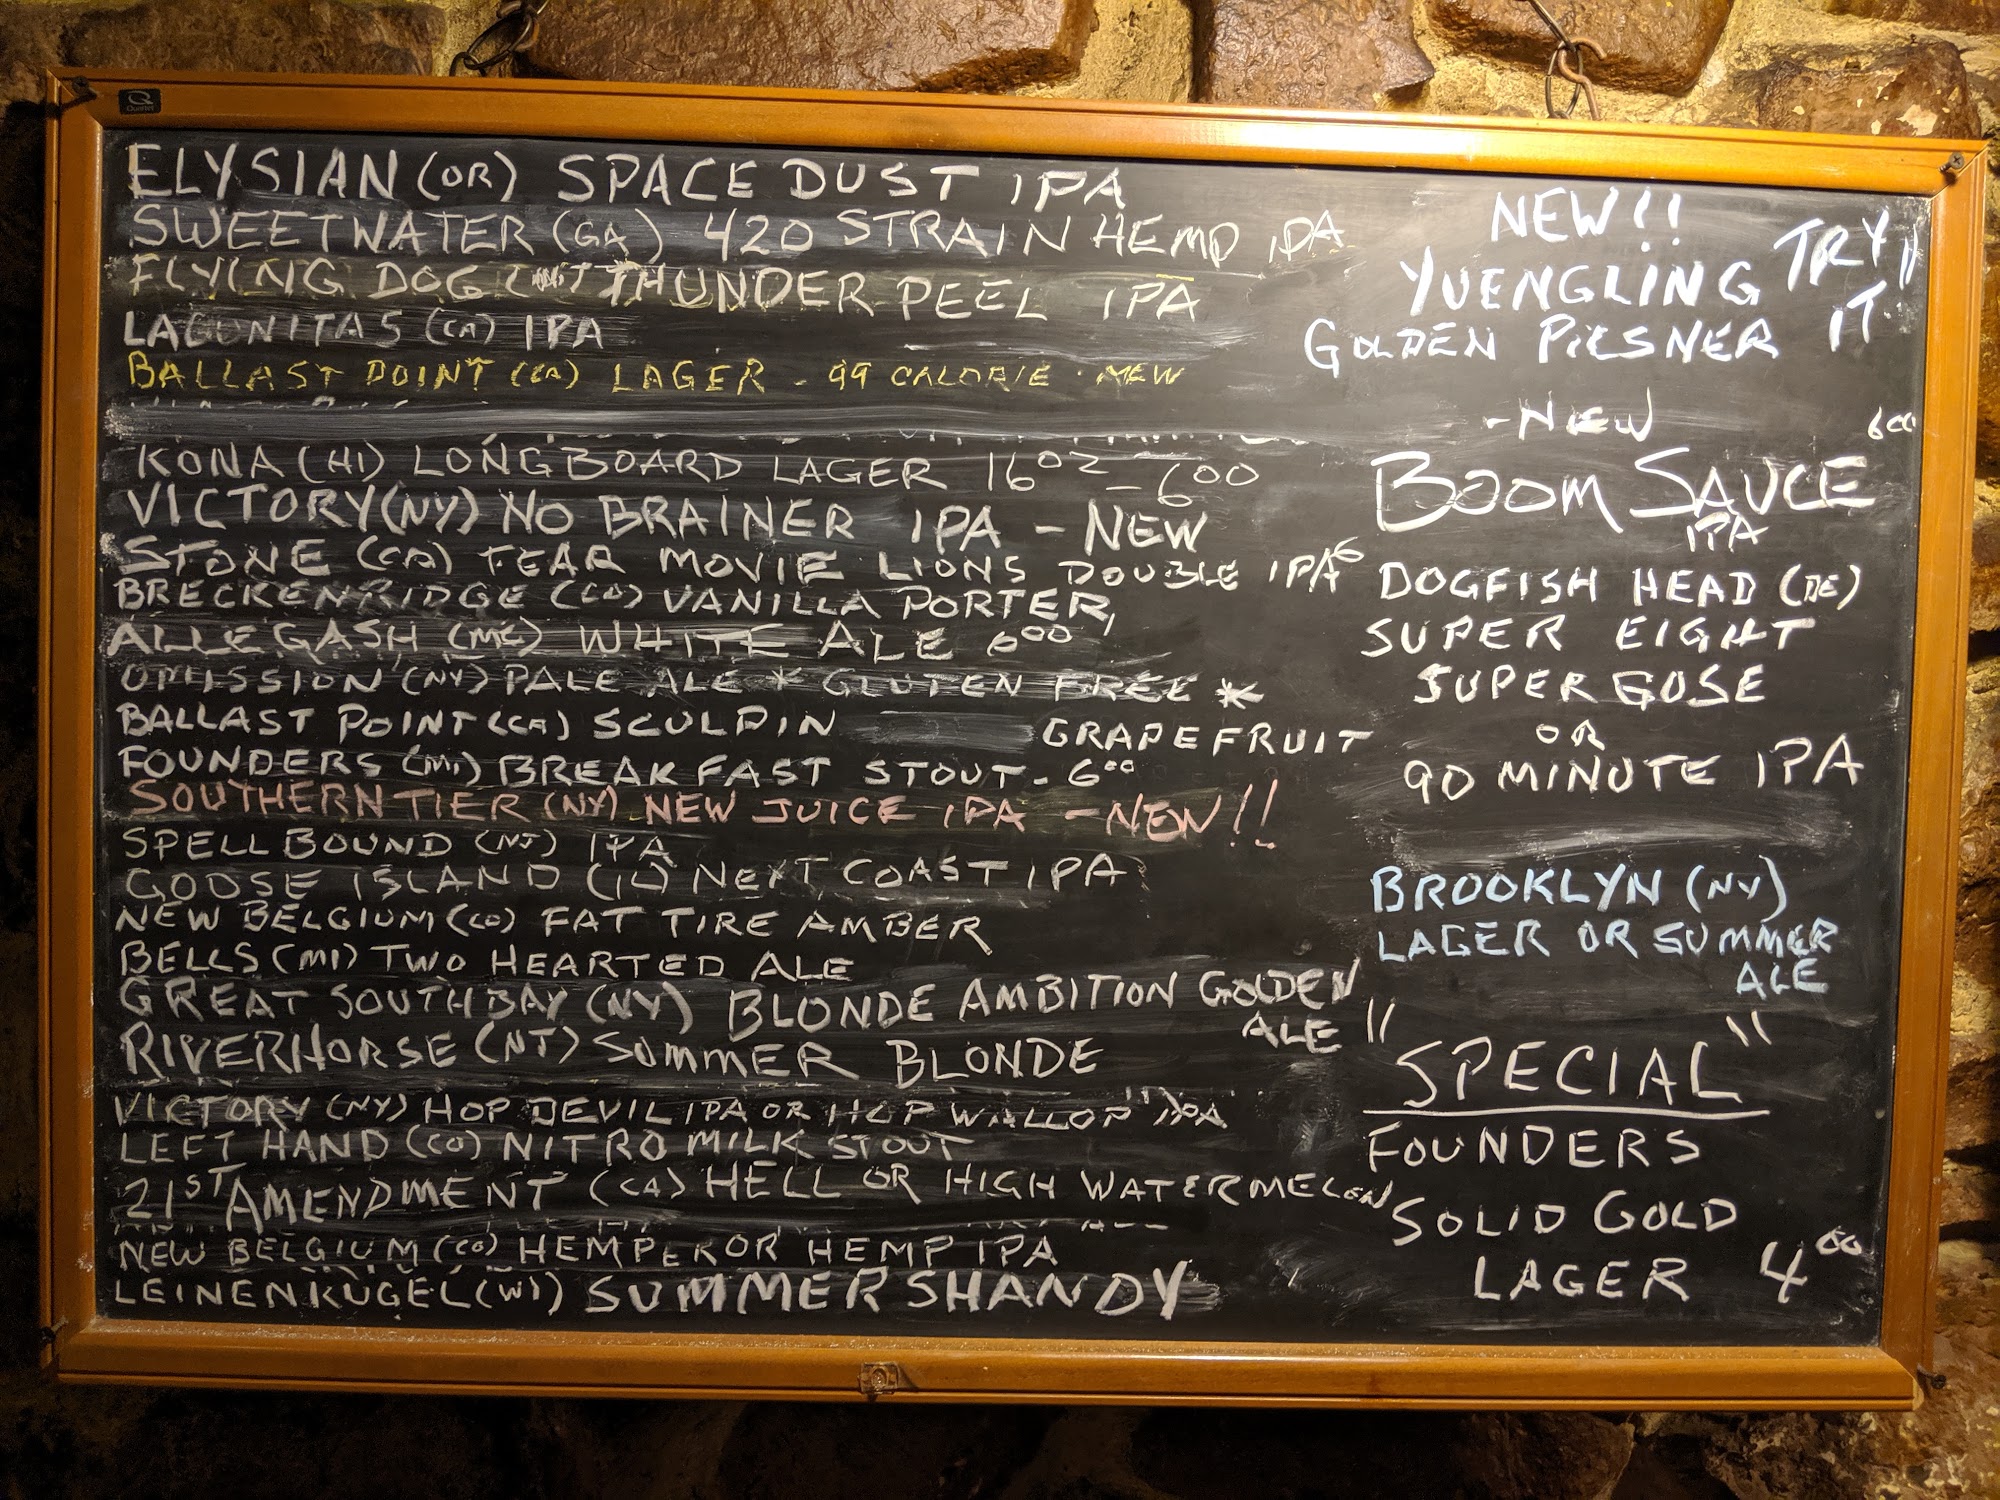 Quartet
ELYSIAN (OR) SPACE DUST IPA
SWEETWATER (GA) 420 STRAIN HEMP IPA
FLYING DOG THUNDER PEEL IPA
LAGUNITAS (CA) IPA
BALLAST POINT (CA) LAGER - 99 CALORIE - NEW
KONA (HI) LONGBOARD LAGER 16OZ - 6.00
VICTORY (NY) NO BRAINER IPA - NEW
STONE (CA) FEAR MOVIE LIONS DOUBLE IPA 6
BRECKENRIDGE (CO) VANILLA PORTER,
ALLEGASH (ME) WHITE ALE 6.00
OMISSION (NY) PALE ALE * GLUTEN FREE *
BALLAST POINT (CA) SCULPIN GRAPEFRUIT
FOUNDERS (MI) BREAKFAST STOUT - 6.00
SOUTHERN TIER (NY) NEW JUICE IPA - NEW!!
SPELLBOUND (NJ) IPA
GOOSE ISLAND (IL) NEXT COAST IPA
NEW BELGIUM (CO) FAT TIRE AMBER
BELLS (MI) TWO HEARTED ALE
GREAT SOUTH BAY (NY) BLONDE AMBITION GOLDEN
ALE
RIVERHORSE (NJ) SUMMER BLONDE
VICTORY (NY) HOP DEVIL IPA OR HOP WALLOP IPA
LEFT HAND (CO) NITRO MILK STOUT
21ST AMENDMENT (CA) HELL OR HIGH WATERMELON
NEW BELGIUM (CO) HEMPEROR HEMP IPA
LEINENKUGEL (WI) SUMMER SHANDY
NEW!!
YUENGLING
GOLDEN PILSNER
TRY
IT!!
- NEW 6.00
BOOM SAUCE
IPA
DOGFISH HEAD (DE)
SUPER EIGHT
SUPER GOSE
OR
90 MINUTE IPA
BROOKLYN (NY)
LAGER OR SUMMER
ALE
"SPECIAL"
FOUNDERS
SOLID GOLD
LAGER 4.00